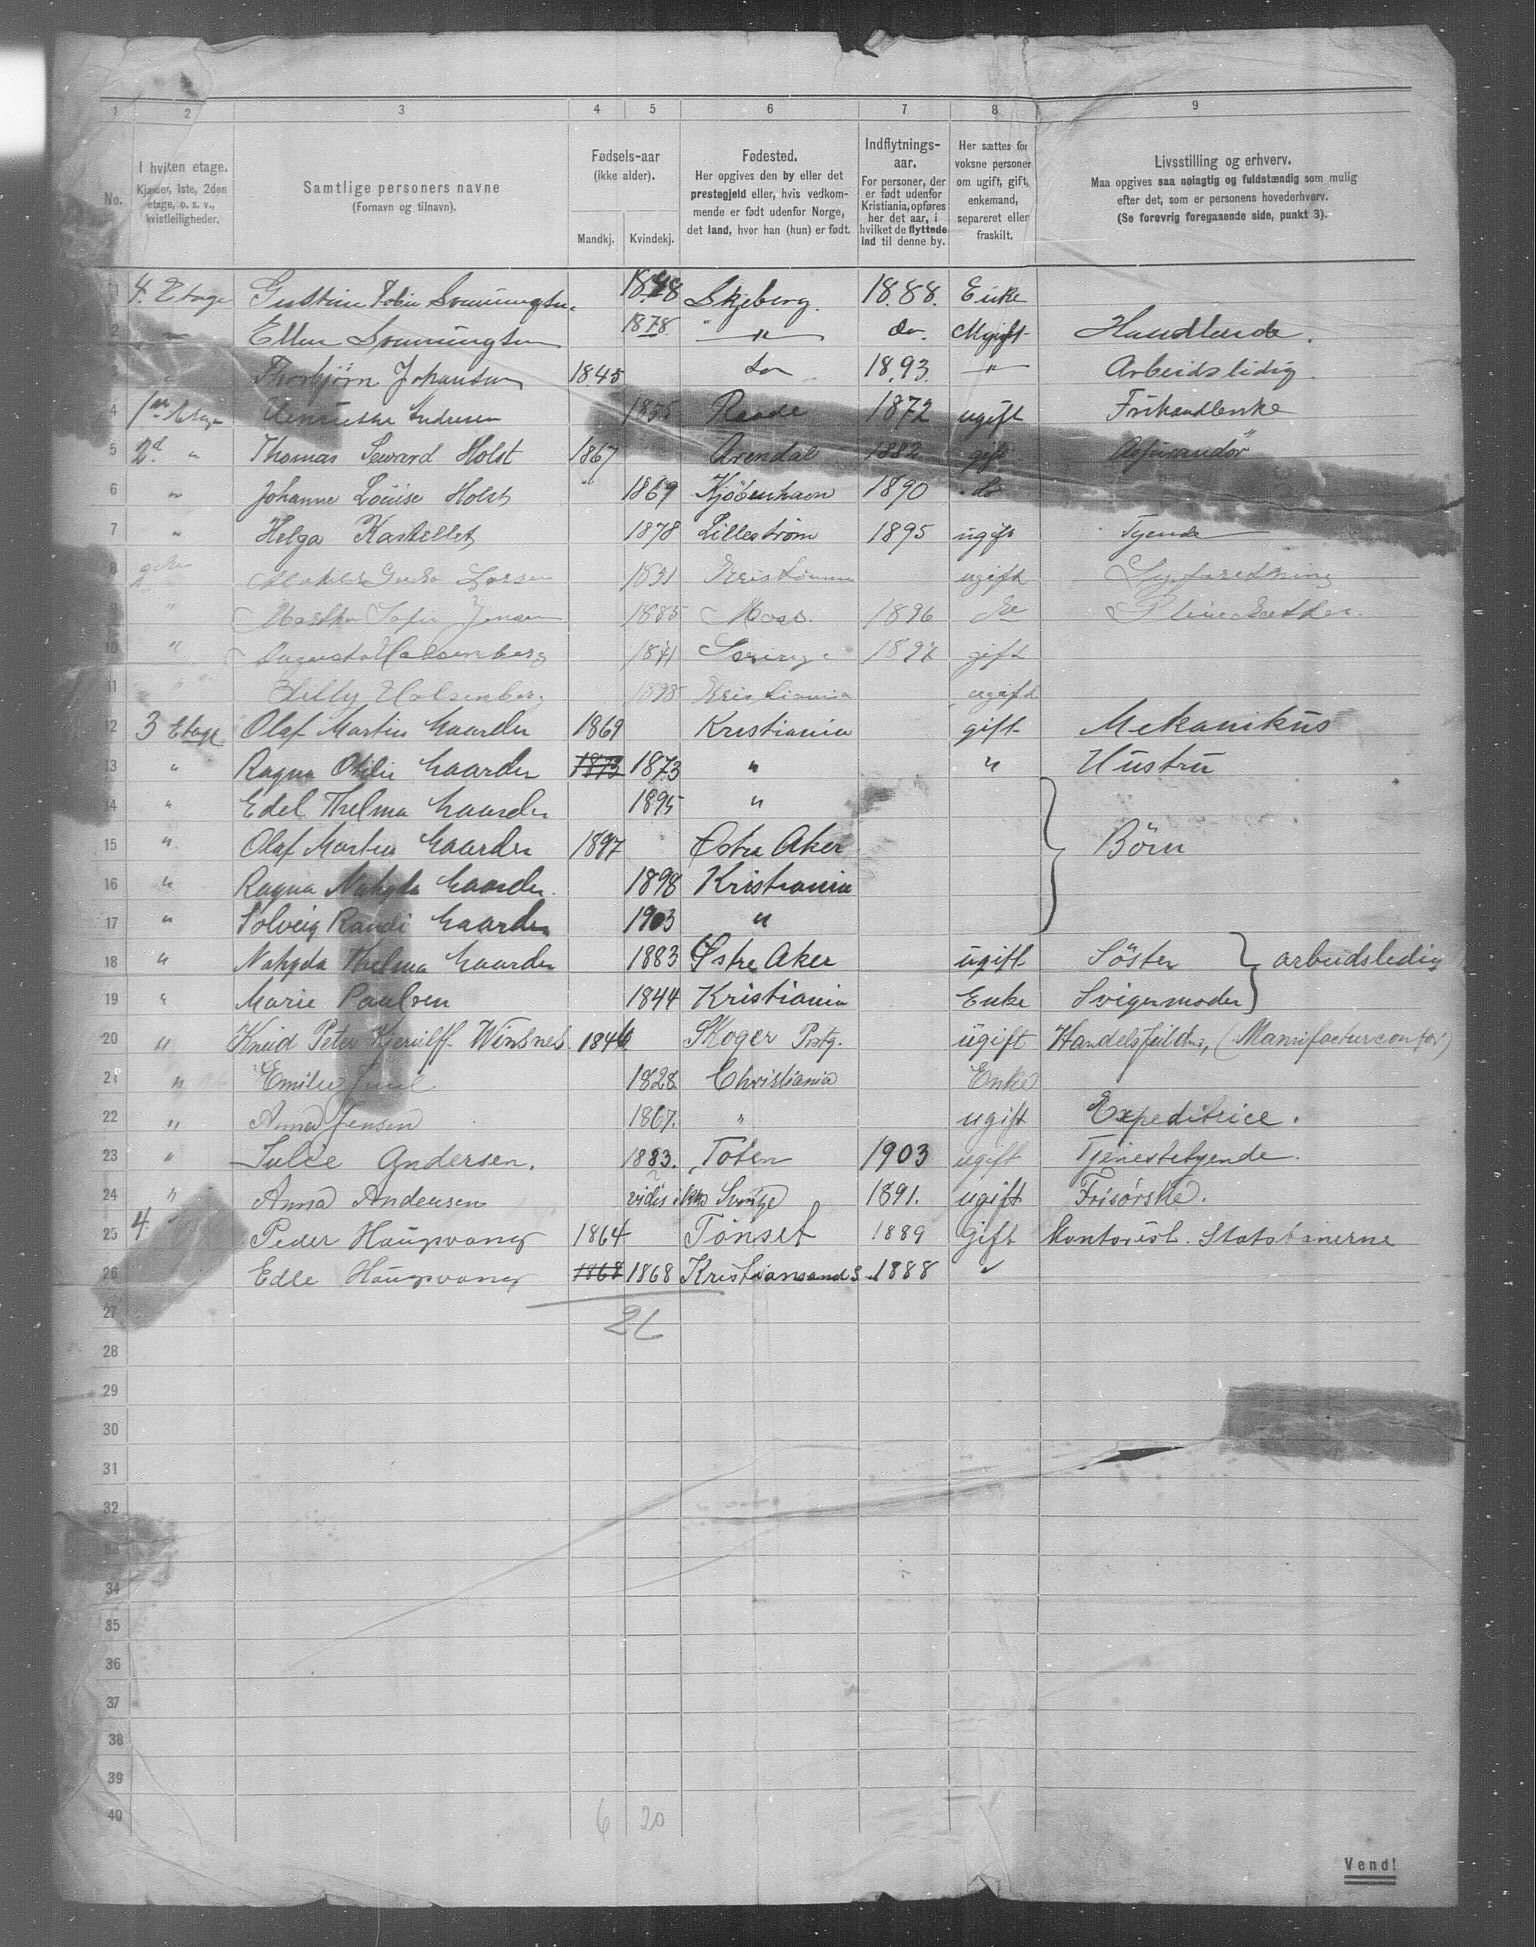 1 2 3 4 5 6 7 8 9
No.
I hvilken etage.
Kjælder, 1ste, 2den
etage, o. s. v.,
kvistleiligheder.
Samtlige personers navne
(Fornavn og tilnavn).
Fødsels-aar
(ikke alder).
Mandkj. Kvindekj.
Fødested.
Her opgives den by eller det
prestegjeld eller, hvis vedkom-
mende er født udenfor Norge,
det land, hvor han (hun) er født.
Indflytnings-
aar.
For personer, der
er født udenfor
Kristiania, opføres
her det aar, i
hvilket de flyttede
ind til denne by.
Her sættes for
voksne personer
om ugift, gift,
enkemand,
separeret eller
fraskilt.
Livsstilling og erhverv.
Maa opgives saa nøiagtig og fuldstændig som mulig
efter det, som er personens hovederhverv.
(Se forøvrig foregaaende side, punkt 3).
1 4. Etage 1848 Skjeberg. 1888. Enke
2 " Ellen 1878. " do. Ugift Handlende.
3 " Thorbjørn Johansen 1845 do 1893. " Arbeidsledig
4 1ste Etage Andersen 1855 Raade 1872 ugift Frihandlerske
5 2d. " Thomas Seward Holst 1867 Arendal 1882 gift Assurandör
6 " Johanne Louise Holst 1869 Kjöbenhavn 1890 do
7 " Helga Kastellet 1878 Lillestrøm 1895 ugift Tjende
8 Larsen Kristiania ugift Syforretning
9 " Martha Sofie Jensen 1885 Moss. 1896 do
10 " Augusta Halsenberg 1871 Sverige 1897 gift
11 " Lilly Halsenberg. 1898 Kristiania ugift
12 3 Etage Olaf Martin Gaarder 1869 Kristiania gift Mekanikus
13 " Ragna Otilie Gaarder 1873 1873 " " Hustru
14 " Edel Thelma Gaarder 1895 "
15 " Olaf Martin Gaarder 1897 Østre Aker Börn
16 " Ragna Nahyda Gaarder. 1898 Kristiania
17 " Solveig Randi Gaarder 1903 "
18 " Nahyda Thelma Gaarder 1883 Østre Aker ugift Söster arbeidsledig
19 " Marie Paulsen 1844 Kristiania Enke Svigermoder
20 " Knud Peter Kjerulff Winsnes. 1846 Skoger Prstg. ugift Handelsfuldm., (Manufacturcontor)
21 " Emilie Juul 1828 Christiania Enke
22 " Anna Jensen 1867. " ugift Expeditrice.
23 " Julie Andersen. 1883. Toten 1903 ugift Tjenestetyende.
24 " Anna Andersen vides ikke Sverige 1891. ugift Frisørske.
25 4. " Peder Haugsvang 1864 Tønset 1889 Gift Kontorist. Statsbanerne
26 Edle Haugsvang 1868 1868 Kristiansand S. 1888 "
27 26
28
29
30
31
32
33
34
35
36
37
38
39
40 6 20
Vend!